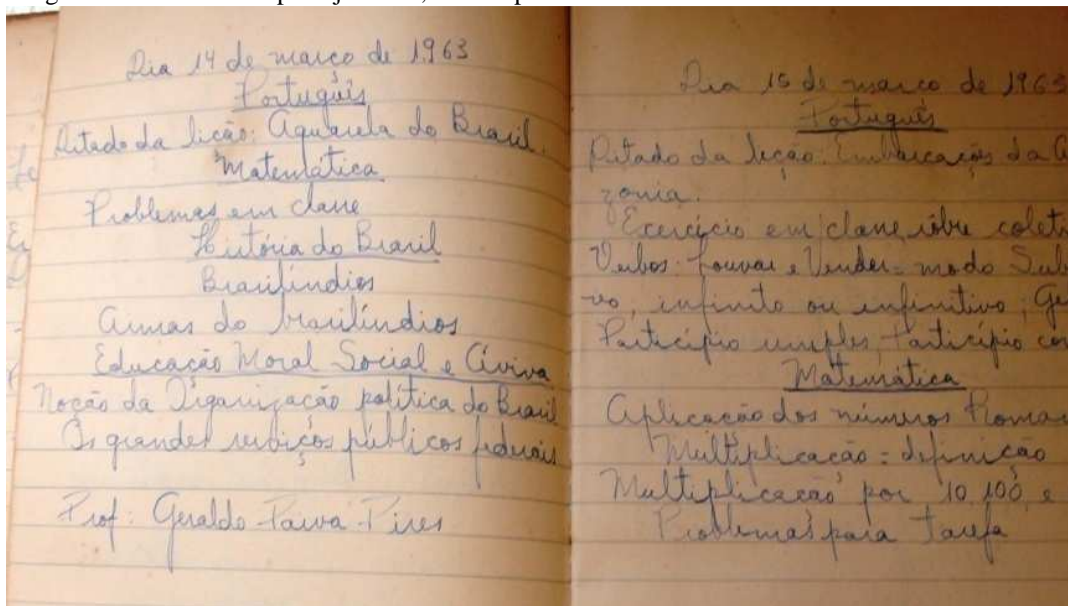 Dia 14 de março de 1963
Português
Ditado da lição: Aquarela do Brasil.
Matemática
Problemas em classe
História do Brasil
Brasilíndios
Armas do brasilíndios
Educação Moral Social e Cíviva
Noção da Organização política do Brasil
Os grandes serviços públicos federais
Prof: Geraldo Paiva Pires
Dia 15 de março de 1963
Português
Ditado da lição: Embarcações da
zonia.
Exercício em classe sôbre coleti
Verbos: Louvar e Vender = modo Sub
vo, infinito ou infinitivo; Ge
Particípio simples, Particípio com
Matemática
Aplicação dos números Roma
Multiplicação = definição
Multiplicação por 10, 100, e
Problemas para tarefa